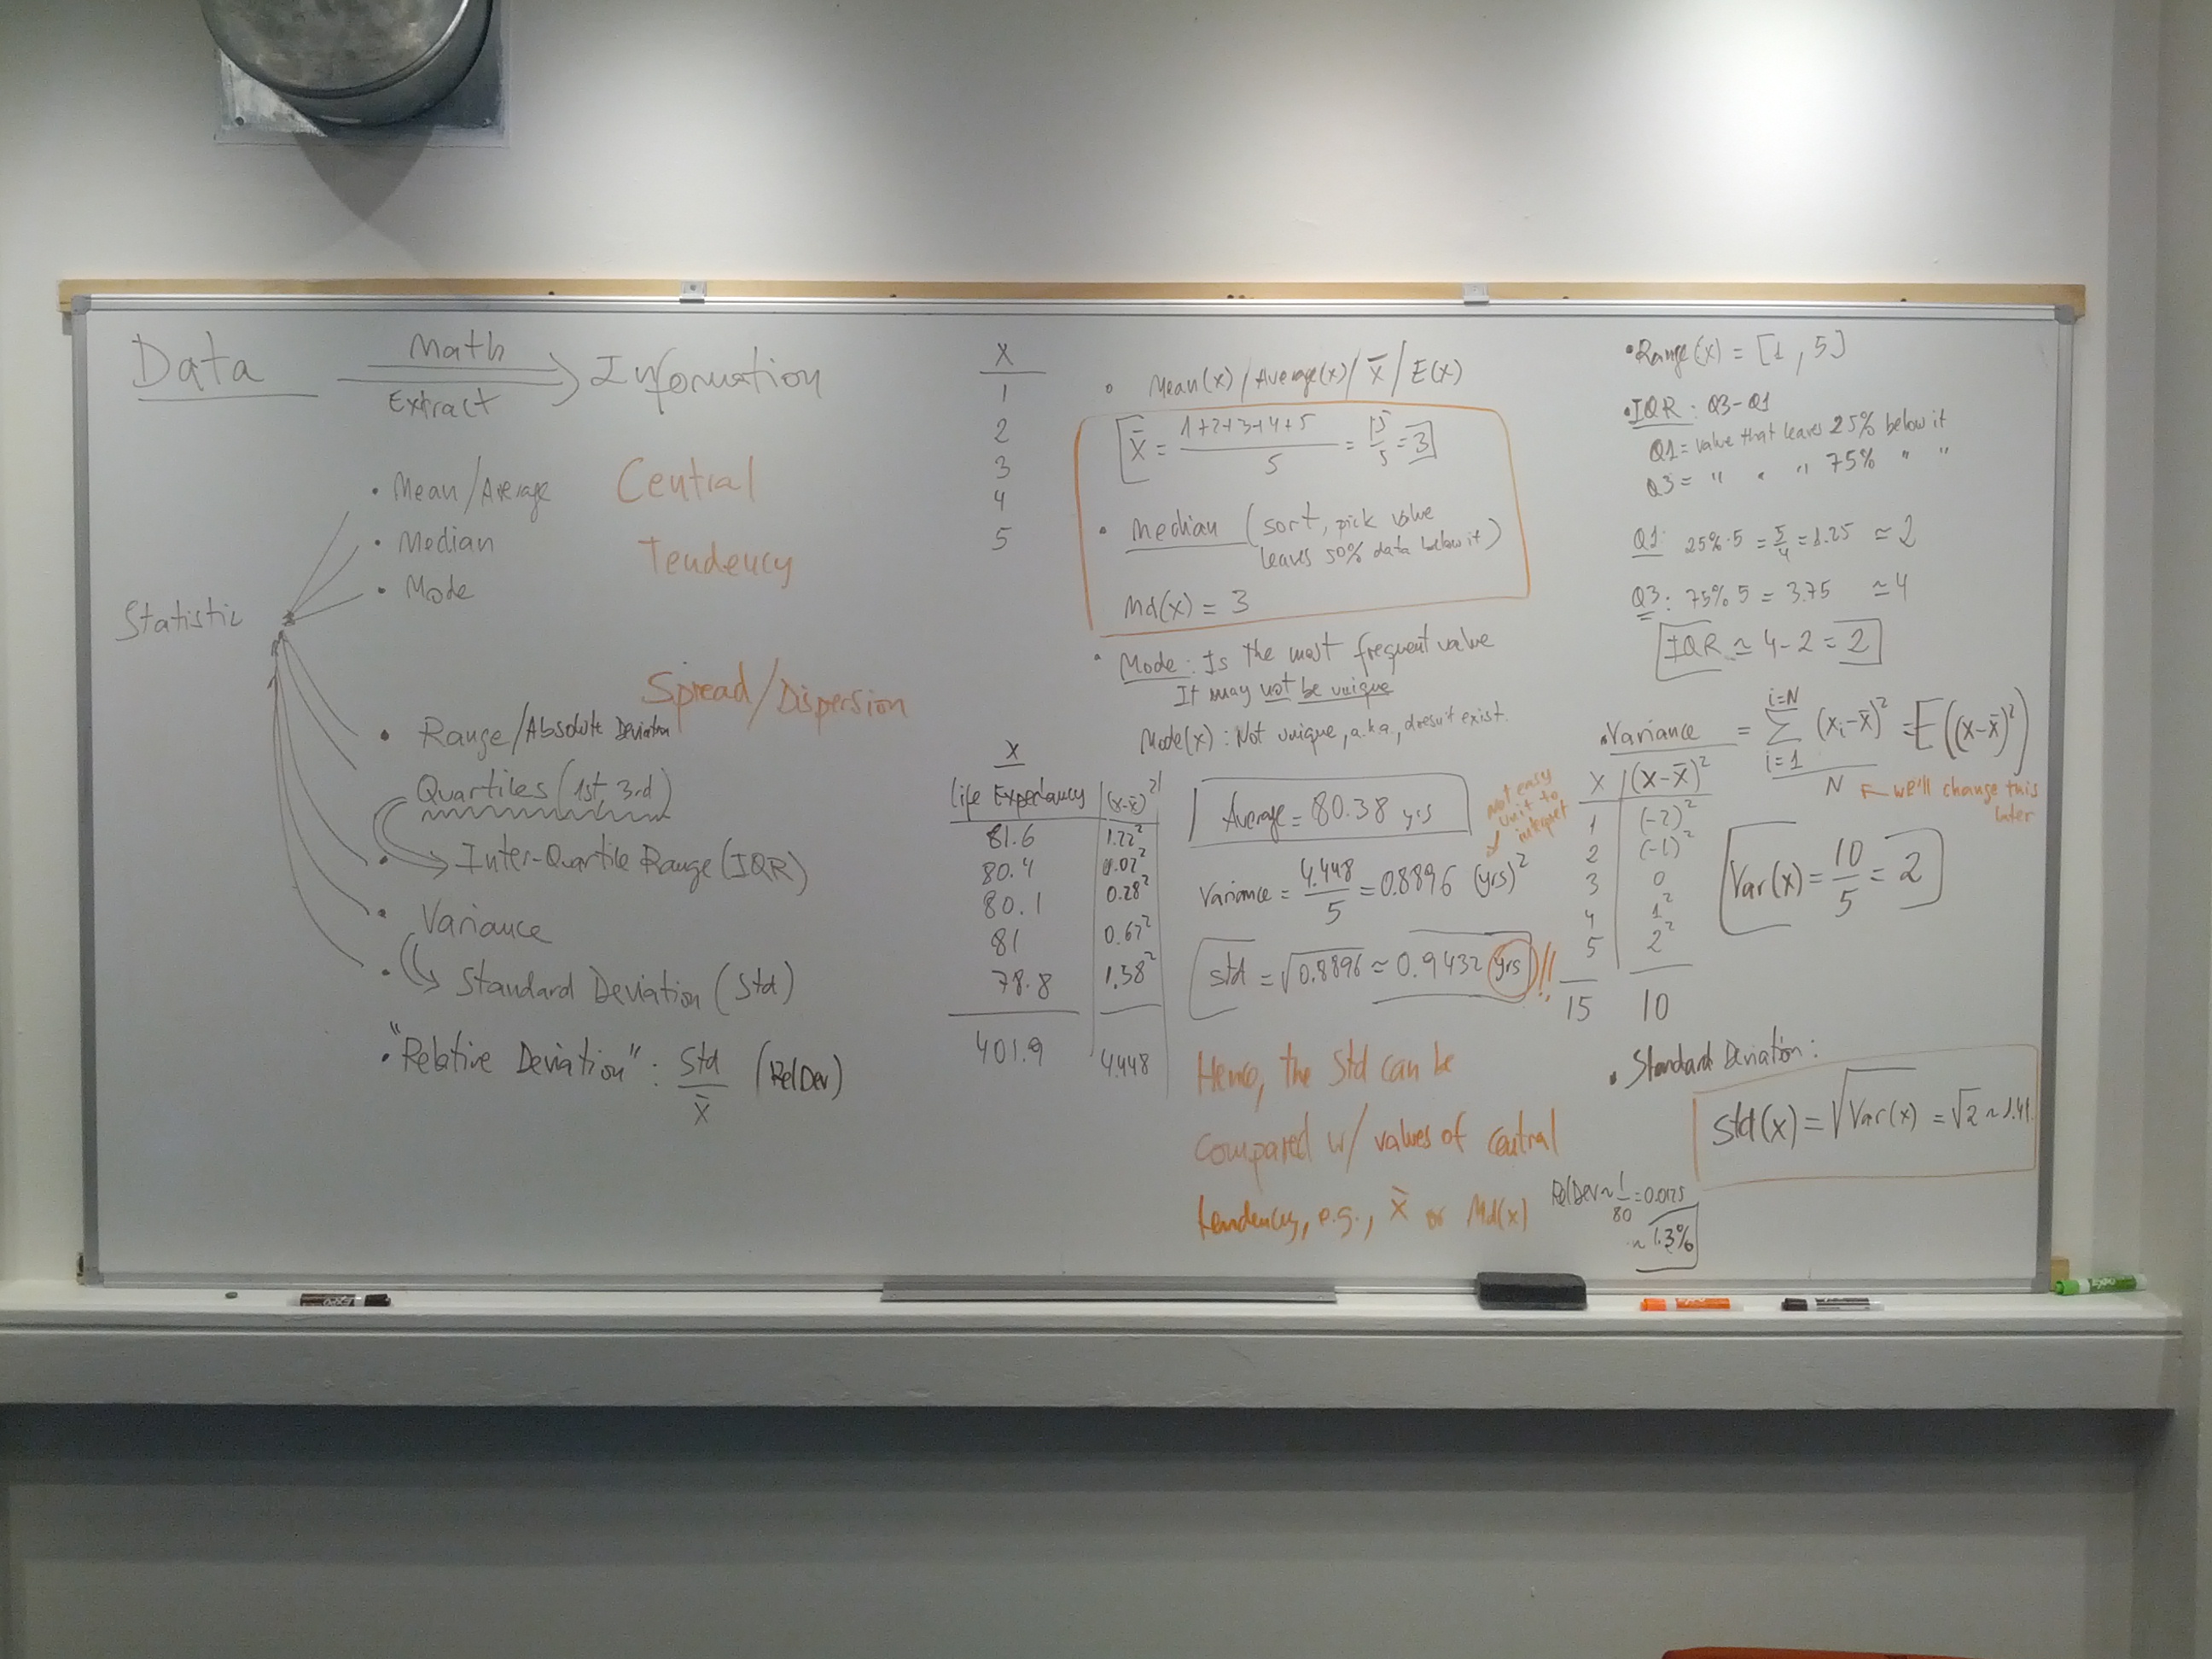 Data
Math
Extract
Information
Statistic
• Mean/Average
• Median
• Mode
Central
Tendency
Spread/Dispersion
• Range/Absolute Deviation
Quartiles (1st, 3rd)
• Inter-Quartile Range (IQR)
• Variance
• Standard Deviation (Std)
• "Relative Deviation": Std/x̄ (RelDev)
X
1
2
3
4
5
• Mean(x)/Average(x)/x̄/E(x)
x̄ = 1+2+3+4+5/5 = 15/5 = 3
• Median (sort, pick value
leaves 50% data below it)
Md(x) = 3
• Mode: Is the most frequent value
It may not be unique
Mode(x): Not unique, a.k.a., doesn't exist.
X
Life Expectancy | (x-x̄)²
81.6 | 1.22²
80.4 | 0.02²
80.1 | 0.28²
81 | 0.62²
78.8 | 1.58²
401.9 | 4.448
Average = 80.38 yrs
Not easy
unit to
interpret
Variance = 4.448/5 = 0.8896 (yrs)²
std = √0.8896 ≈ 0.9432 yrs !!
Hence, the Std can be
compared w/ values of central
tendency, e.g., x̄ or Md(x)
RelDev ~ 1/80 = 0.0125
~ 1.3%
• Range(x) = [1, 5]
• IQR: Q3-Q1
Q1 = value that leaves 25% below it
Q3 = " " " 75% " "
Q1: 25%·5 = 5/4 = 1.25 ≃ 2
Q3: 75% 5 = 3.75 ≃ 4
IQR ≃ 4-2 = 2
• Variance = i=N ∑ i=1 (xi-x̄)² / N = E((x-x̄)²)
we'll change this
later
X | (x-x̄)²
1 | (-2)²
2 | (-1)²
3 | 0
4 | 1²
5 | 2²
15 10
Var(x) = 10/5 = 2
• Standard Deviation:
std(x) = √Var(x) = √2 ~ 1.41
EXPO